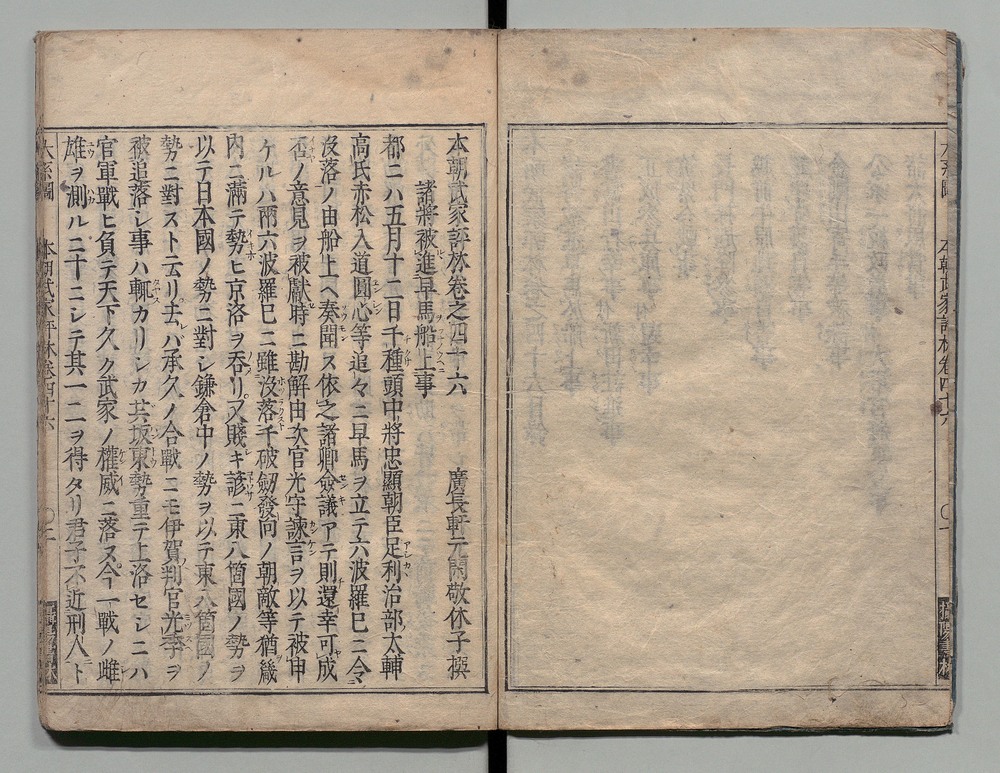 本朝武家評林卷四十六
本朝武家評林卷之四十六　廣長軒元閑敬休子撰
諸將被進早馬船上事
都ニハ五月十二日千種頭中將忠顯朝臣足利治部太輔
高氏赤松入道圓心等追々ニ早馬ヲ立テ六波羅已ニ令
沒落ノ由船上ヘ奏聞ス依之諸卿僉議アテ則還幸可成
否ノ意見ヲ被獻時ニ勘解由次官光守諫言ヲ以テ被申
ケルハ兩六波羅已ニ雖沒落千破劔發向ノ朝敵等猶畿
内ニ滿テ勢ヒ京洛ヲ呑リ又賤キ諺ニ東八箇國ノ勢ヲ
以テ日本國ノ勢ニ對シ鎌倉中ノ勢ヲ以テ東八箇國ノ
勢ニ對スト云リ去バ承久ノ合戰ニモ伊賀判官光季ヲ
被追落シ事ハ輒カリシカ共坂東勢重テ上洛セシニハ
官軍戰ヒ負テ天下久ク武家ノ權威ニ落ヌ今一戰ノ雌
雄ヲ測ルニ十ニシテ其一二ヲ得タリ君子不近刑人ト
大系圖　本朝武家評林卷四十六